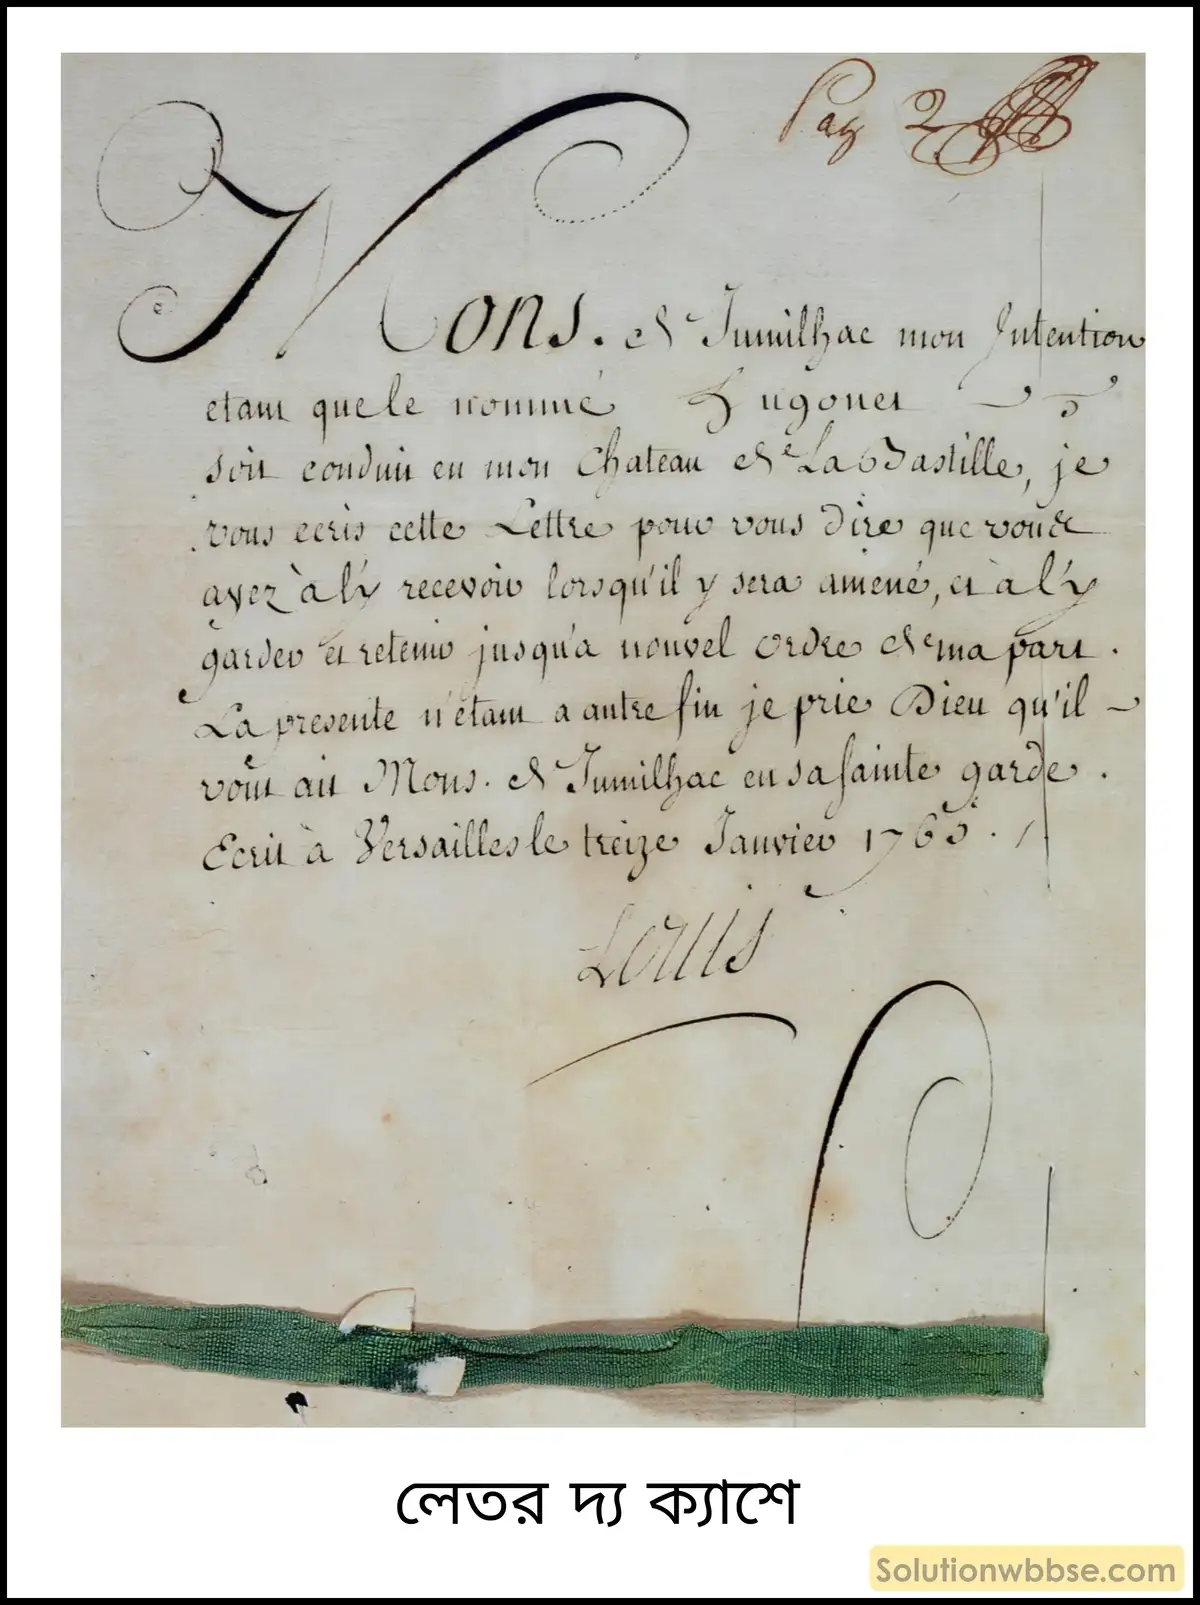 Pag 2
Mons. de Jumilhac mon Intention
etant que le nommé Hugonet
soit conduit en mon Chateau de La Bastille, je
vous ecris cette Lettre pour vous dire que vous
ayez à l'y recevoir lorsqu'il y sera amené, et à l'y
garder et retenir jusqu'a nouvel ordre de ma part.
La presente n'étant a autre fin je prie Dieu qu'il
vous ait Mons. de Jumilhac en sa sainte garde.
Ecrit à Versailles le treize Janvier 1765.
Louis
লেতর দ্য ক্যাশে
Solutionwbbse.com